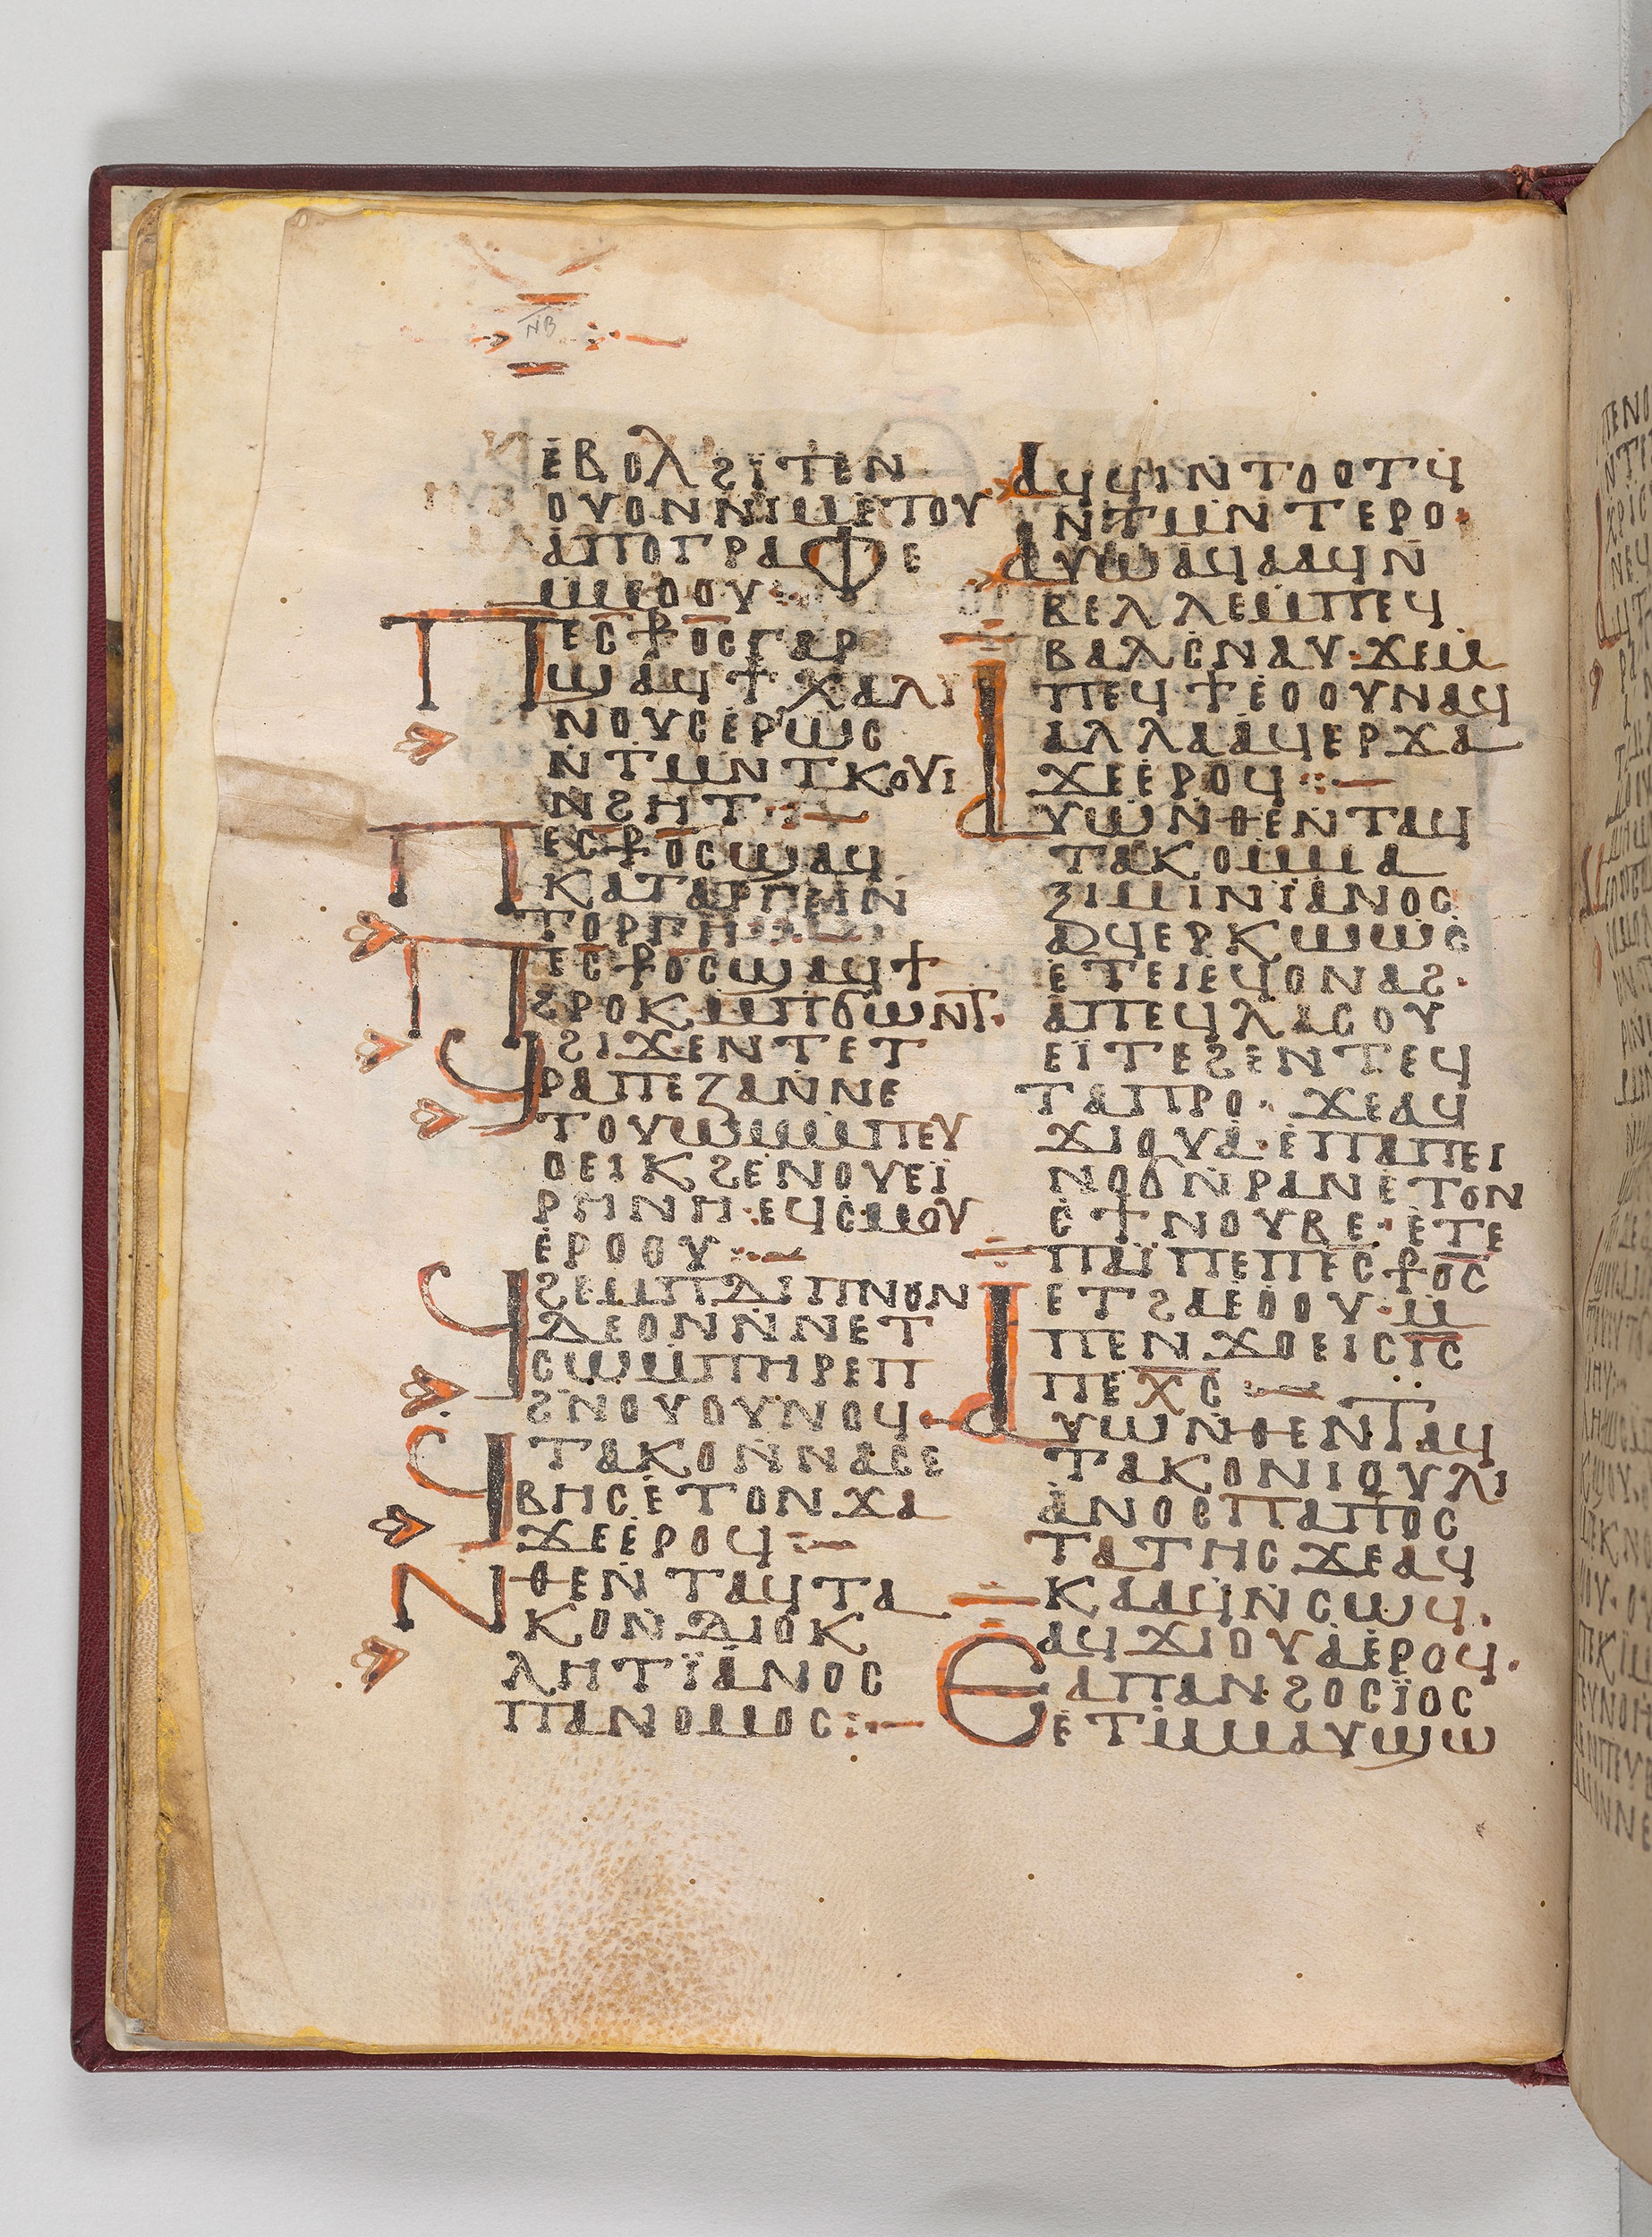 ⲛⲃ
ⲉⲃⲟⲗϩⲓ̈ⲧⲉⲛ
ⲟⲩⲟⲛⲛⲓⲙⲉⲧⲟⲩ
ⲁⲡⲟⲅⲣⲁⲫⲉ
ⲙⲙⲟⲟⲩ
ⲡⲉⲥ⳨ⲟⲥⲅⲁⲣ
ϣⲁϥϯⲭⲁⲗⲓ
ⲛⲟⲩⲥⲉⲣⲱⲥ
ⲛⲧⲙⲛⲧⲕⲟⲩⲓ
ⲛϩⲏⲧ
ⲡⲉⲥ⳨ⲟⲥϣⲁϥ
ⲕⲁⲧⲁⲣⲅⲉⲓⲛ
ⲧⲟⲣⲅⲏ
ⲡⲉⲥ⳨ⲟⲥϣⲁϥϯ
ϩⲣⲟⲕⲙⲡϭⲱⲛⲧ·
ϥϩⲓϫⲉⲛⲧⲉⲧ
ⲣⲁⲡⲉⲍⲁⲛⲛⲉ
ⲧⲟⲩⲱⲙⲙⲡⲉⲩ
ⲟⲉⲓⲕϩⲉⲛⲟⲩⲉⲓ̈
ⲣⲏⲛⲏ·ⲉϥⲥⲙⲟⲩ
ⲉⲣⲟⲟⲩ
ϥϩⲉⲙⲡⲇⲓⲡⲛⲟⲛ
ⲇⲉⲟⲛⲛⲛⲉⲧ
ⲥⲱⲙⲡⲏⲣⲉⲡ
ϩⲛⲟⲩⲟⲩⲛⲟϥ
ϥⲧⲁⲕⲟⲛⲛⲁⲥⲉ
ⲃⲏⲥⲉⲧⲟⲛϫⲁ
ϫⲉⲉⲣⲟϥ
ⲛⲑⲉⲛⲧⲁϥⲧⲁ
ⲕⲟⲛⲇⲓⲟⲕ
ⲗⲏⲧⲓ̈ⲁⲛⲟⲥ
ⲡⲁⲛⲟⲙⲟⲥ
ⲁϥϥⲓⲛⲧⲟⲟⲧϥ
ⲛⲧⲙⲛⲧⲉⲣⲟ·
ⲁⲩⲱⲁϥⲁⲁϥⲛ
ⲃⲉⲗⲗⲉⲙⲡⲉϥ
ⲃⲁⲗⲥⲛⲁⲩ·ϫⲉⲙ
ⲡⲉϥϯⲉⲟⲟⲩⲛⲁϥ
ⲁⲗⲗⲁⲁϥⲉⲣϫⲁ
ϫⲉⲉⲣⲟϥ
ⲁⲩⲱⲛⲑⲉⲛⲧⲁϥ
ⲧⲁⲕⲟⲙⲙⲁ
ⲝⲓⲙⲓⲛⲓ̈ⲁⲛⲟⲥ
ⲁϥⲉⲣⲕⲱⲱⲥ
ⲉⲧⲉⲓⲉϥⲟⲛⲁϩ·
ⲁⲡⲉϥⲗⲁⲥⲟⲩ
ⲉⲓ̈ⲧⲉϩⲉⲛⲧⲉϥ
ⲧⲁⲡⲣⲟ·ϫⲉⲁϥ
ϫⲓⲟⲩⲁ·ⲉⲡⲁⲡⲉⲓ
ⲛⲟϭⲛⲣⲁⲛⲉⲧⲟⲛ
ⲥϯⲛⲟⲩⲃⲉ·ⲉⲧⲉ
ⲡⲁⲓ̈ⲡⲉⲡⲉⲥ⳨ⲟⲥ
ⲉⲧϩⲁⲉⲟⲟⲩ·ⲙ
ⲡⲉⲛϫⲟⲉⲓⲥⲓ̅ⲥ̅
ⲡⲉⲭ̅ⲥ̅
ⲁⲩⲱⲛⲑⲉⲛⲧⲁϥ
ⲧⲁⲕⲟⲛⲓⲟⲩⲗⲓ
ⲁⲛⲟⲥⲡⲁⲡⲟⲥ
ⲧⲁⲧⲏⲥϫⲉⲁϥ
ⲕⲁⲁϥⲛⲥⲱϥ·
ⲁϥϫⲓⲟⲩⲁⲉⲣⲟϥ·
ⲉⲁⲡⲁⲛϩⲟⲥⲓ̈ⲟⲥ
ⲉⲧⲙⲙⲁⲩϣⲱ